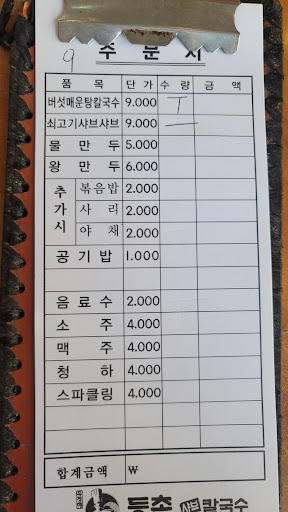 9 주 문 서
품 목 단 가 수 량 금 액
버섯매운탕칼국수 9.000 T
쇠고기샤브샤브 9.000 一
물 만 두 5.000
왕 만 두 6.000
추가시 볶음밥 2.000
사 리 2.000
야 채 2.000
공 기 밥 1.000
음 료 수 2.000
소 주 4.000
맥 주 4.000
청 하 4.000
스파클링 4.000
합계금액 ₩
등촌 샤브칼국수